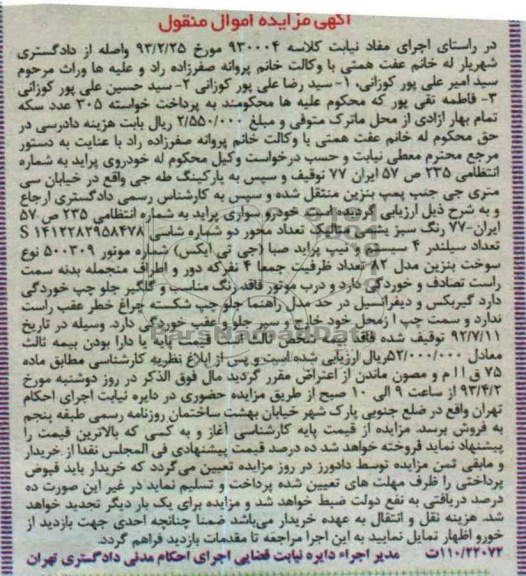 آگهی مزایده اموال منقول
در راستای اجرای مفاد نیابت کلاسه ۹۳۰۰۰۴ مورخ ۹۳/۲/۲۵ واصله از دادگستری
شهریار له خانم عفت همتی با وکالت خانم پروانه صفرزاده راد و علیه ها وراث مرحوم
سید امیر علی پور کوزانی، ۱- سید رضا علی پور کوزانی ۲- سید حسین علی پور کوزانی
۳- فاطمه تقی پور که محکوم علیه ها محکومند به پرداخت خواسته ۳۰۵ عدد سکه
تمام بهار آزادی از محل ماترک متوفی و مبلغ ۲/۵۵۰/۰۰۰ ریال بابت هزینه دادرسی در
حق محکوم له خانم عفت همتی با وکالت خانم پروانه صفرزاده راد با عنایت به دستور
مرجع محترم معطی نیابت و حسب درخواست وکیل محکوم له خودروی پراید به شماره
انتظامی ۲۳۵ ص ۵۷ ایران ۷۷ توقیف و سپس به پارکینگ طه جی واقع در خیابان سی
متری جی جنب پمپ بنزین منتقل شده و سپس به کارشناس رسمی دادگستری ارجاع
و به شرح ذیل ارزیابی گردیده است. خودرو سواری پراید به شماره انتظامی ۲۳۵ ص ۵۷
ایران-۷۷ رنگ سبز یشمی متالیک تعداد محور دو شماره شاسی S ۱۴۱۲۲۸۲۹۵۸۴۷۸
تعداد سیلندر ۴ سیستم و تیپ پراید صبا (جی تی ایکس) شماره موتور ۵۰۰۳۰۹ نوع
سوخت بنزین مدل ۸۲ تعداد ظرفیت جمعا ۴ نفرکه دور و اطراف منجمله بدنه سمت
راست تصادف و خوردگی دارد و درب موتور فاقد رنگ مناسب و گلگیر جلو چپ خوردگی
دارد گیربکس و دیفرانسیل در حد مدل راهنما جلو چپ شکسته چراغ خطر عقب راست
ندارد و سمت چپ از محل خود خارج و سپر جلو و عقب خوردگی دارد. وسیله در تاریخ
۹۲/۷/۱۱ توقیف شده فاقد بیمه شخص ثالث است قیمت پایه با دارا بودن بیمه ثالث
معادل ۵۲/۰۰۰/۰۰۰ریال ارزیابی شده است و پس از ابلاغ نظریه کارشناسی مطابق ماده
۷۵ ق ا ا م و مصون ماندن از اعتراض مقرر گردید مال فوق الذکر در روز دوشنبه مورخ
۹۳/۴/۲ از ساعت ۹ الی ۱۰ صبح از طریق مزایده حضوری در دایره نیابت اجرای احکام
تهران واقع در ضلع جنوبی پارک شهر خیابان بهشت ساختمان روزنامه رسمی طبقه پنجم
به فروش برسد. مزایده از قیمت پایه کارشناسی آغاز و به کسی که بالاترین قیمت را
پیشنهاد نماید فروخته خواهد شد ده درصد قیمت پیشنهادی فی المجلس نقدا از خریدار
و مابقی ثمن مزایده توسط دادورز در روز مزایده تعیین می‌گردد که خریدار باید قبوض
پرداختی را ظرف مهلت های تعیین شده پرداخت و تسلیم نماید در غیر این صورت ده
درصد دریافتی به نفع دولت ضبط خواهد شد و مزایده برای یک بار دیگر تجدید خواهد
شد. هزینه نقل و انتقال به عهده خریدار می‌باشد ضمنا چنانچه احدی جهت بازدید از
خورو اظهار تمایل نمایید به این اجرا مراجعه تا مقدمات بازدید فراهم گردد.
۱۱۰/۲۲۰۷۲ت مدیر اجراء دایره نیابت قضایی اجرای احکام مدنی دادگستری تهران